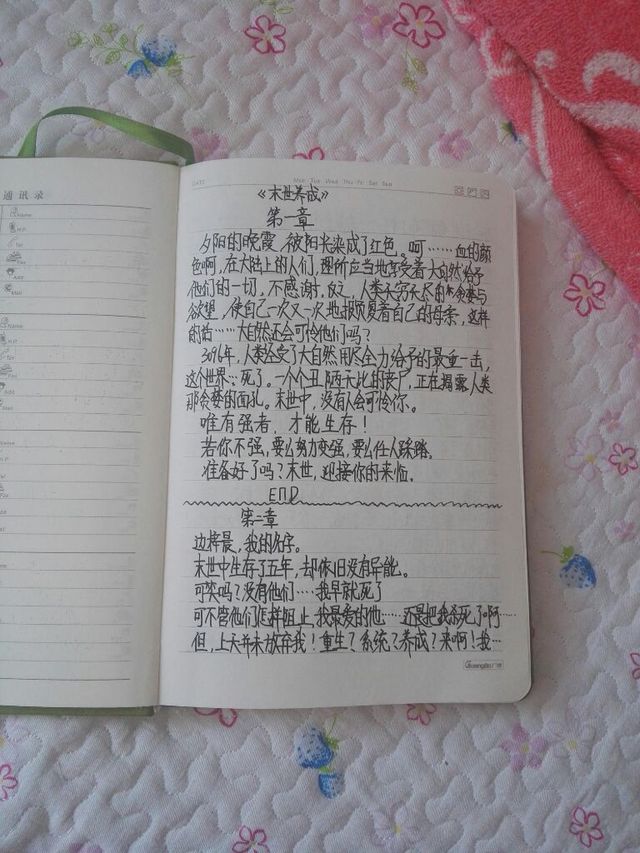 通讯录
Name
H.P
Tel
Fax
Add
Mail
DATE
Mon Tue Wed Thu Fri Sat Sun
《末世养成》
第一章
夕阳的晚霞,被阳光染成了红色。呵……血的颜
色啊,在大陆上的人们,理所应当地享受着大自然给予
他们的一切,不感谢,反之,人类无穷无尽的贪婪与
欲望,使自己一次又一次地报复着自己的母亲,这样
的话……大自然还会可怜他们吗?
3096年,人类给受了大自然用尽全力给予的最重一击,
这个世界∵死了。一个个丑陋无比的丧尸,正在揭露人类
那贪婪的面孔。末世中,没有人会可怜你。
唯有强者,才能生存!
若你不强,要么努力变强,要么任人踩踏。
准备好了吗?末世,迎接你的来临。
END
第二章
边梓晨,我的名字。
末世中生存了五年,却依旧没有异能。
可笑吗?没有他们……我早就死了
可不管他们怎样阻止,我最爱的他……还是把我杀死了啊……
但,上天并未放弃我!重生?系统?养成?来啊!我…
Guangbo广博